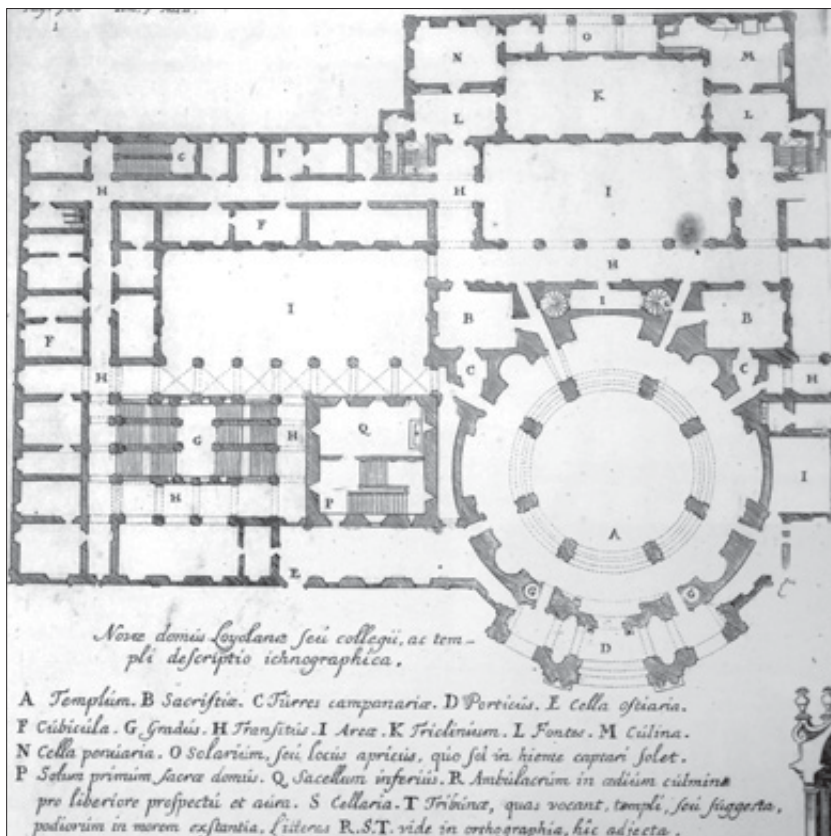 N
O
M
K
L
L
G
F
H
H
I
F
H
I
B
I
B
F
C
C
H
H
Q
G
H
I
H
P
A
G
G
E
D
Novæ domus Loyolanæ seu collegii, ac tem-
pli descriptio ichnographica.
A Templum. B Sacristiæ. C Turres campanariæ. D Porticus. E Cella ostiaria.
F Cubicula. G Gradus. H Transitus. I Areæ. K Triclinium. L Fontes. M Culina.
N Cella penuaria. O Solarium, seu locus apricus, quo sol in hieme captari solet.
P Solum primum sacræ domus. Q Sacellum inferius. R Ambulacrum in ædium culmine
pro liberiore prospectu et aura. S Cellaria. T Tribunæ, quas vocant, templi, seu suggesta,
podiorum in morem exstantia. Litteras R.S.T. vide in orthographia, hic adjecta.